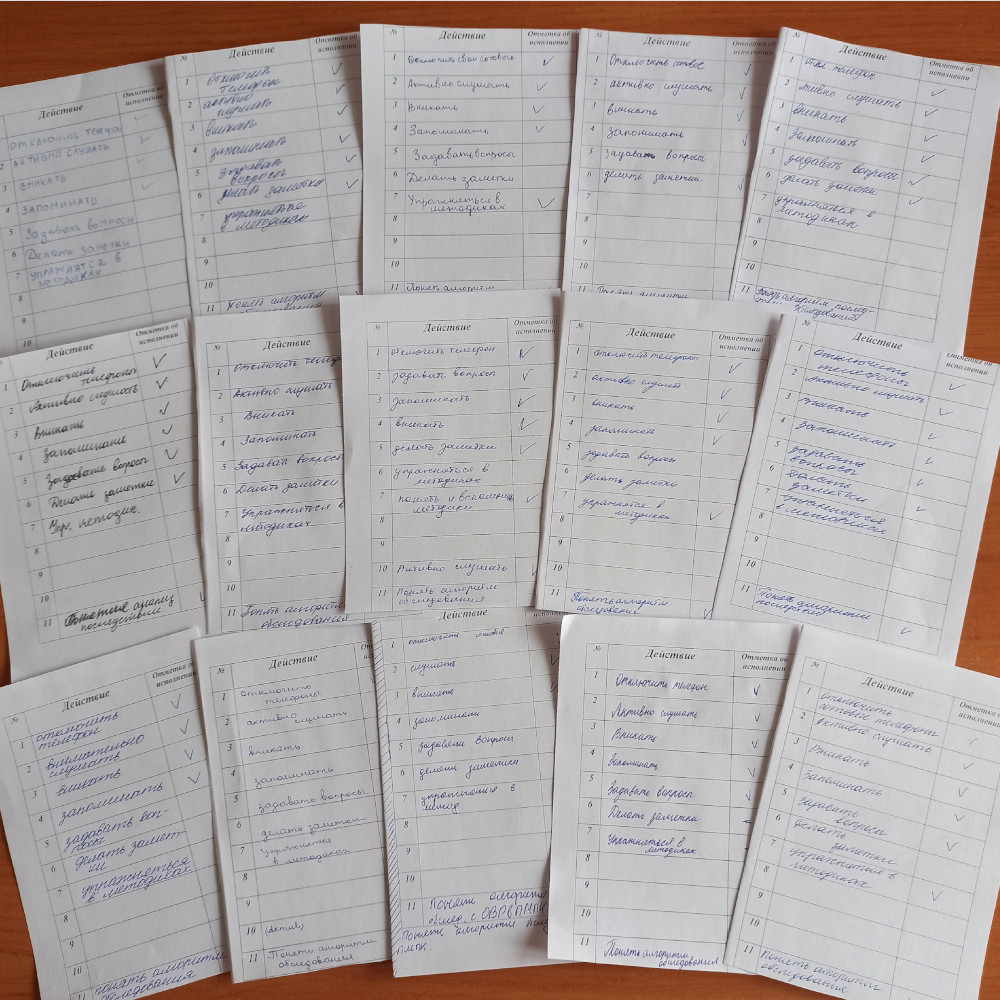 Действие
Отметка об
исполнении
отключить телефо
2 активно слушать
3 вникать
4 запоминать
5 Задавать вопросы
6 Делать заметки
7 упражнятся в
методиках
8
9
10
Действие
Отметка об
исполнении
1 Отключить
телефон
2 активно
слушать
3 вникать
4 запоминать
5 задавать
вопросы
6 делать заметки
7 упражняться
в методиках
8
9
10
11 Понять алгоритм
обследования
№ Действие
Отметка об
исполнении
1 Отключить свои сотовые
2 Активно слушать
3 Вникать
4 Запоминать
5 Задавать вопросы
6 Делать заметки
7 Упражняться в
методиках
8
9
10
11 Понять алгоритм
№ Действие
Отметка об
исполнении
1 Отключить
2 активно слушать
3 вникать
4 запоминать
5 Задавать вопросы
6 делать заметки
7
8
9
10
11 Понять алгоритм
№ Действие
Отметка об
исполнении
1 откл телефон
2 слушать
3 вникать
4 Запоминать
5 задавать вопросы
6 делать заметки
7 упражняться в
методиках
8
9
10
11
обследования
№ Действие
Отметка об
исполнении
1 Отключение
телефоны
2 Активно слушать
3 Вникать
4 Запоминание
5 Задавание вопросы
6 Делание заметки
7 Упр. методик.
8
9
10
11
последствии
№ Действие
1 Отключить телефо
2 Активно слушать
3 Вникать
4 Запоминать
5 Задават вопрос
6 Делать заметки
7 Упражняться в
методиках
8
9
10
11 Понять алгоритм
обследования
№ Действие
Отметка об
исполнении
1 Отключить телефон
2 задавать вопросы
3 запоминать
4 вникать
5 делать заметки
6 упражняться в
методиках
7 понять и
методики
8
9
10 Активно слушать
11 Понять алгоритм
обследования
№ Действие
Отметка об
исполнении
1 отключить телефоны
2 активно слушат
3 вникать
4 запоминат
5 задавать вопросы
6 делать заметки
7 упражнятся в
методиках
8
9
10
11 Понять алгоритм
обследования
№ Действие
Отметка об
исполнении
1 отключить
телефоны
2 Активно слушать
3 Вникать
4 Запоминать
5 Задавать
вопросы
6 Делать
заметки
7 Упражняться
в методиках
8
9
10
11 Понять
№ Действие
Отметка об
исполнении
1 отключить
телефон
2 внимательно
слушать
3 вникать
4 запоминать
5 задавать воп-
росы
6 делать замет-
ки
7 упражняться
в методиках
8
9
10
11 понять алгоритм
обследования
№ Действие
1 отключить
телефоны
2 активно слушать
3 вникать
4 запоминать
5 задавать вопросы
6 делать заметки
7 Упражнятся
в методиках
8
9
10 (Актив)
11 Понять алгоритм
обследования
Действие
1 отключить
2 слушать
3 вникать
4 запоминать
5 задавать вопросы
6 делать заметки
7 упражнение в
метод
8
9
10
11 Понять алгоритм
обслед. с ОВРВПМПК
Понять алгоритм
ПМПК.
№ Действие
Отметка об
исполнении
1 Отключить телефон
2 Активно слушать
3 Вникать
4 Запоминать
5 Задавать вопросы
6 Делать заметки
7 Упражняться в
методиках
8
9
10
11 Понять алгоритм
обследования
№ Действие
Отметка об
исполнении
1 Отключить
сотовые телефоны
2 Активно слушать
3 Вникать
4 Запоминать
5 Задавать
вопросы
6 Делать
заметки
7 Упражняться в
методиках
8
9
10
11 Понять алгоритм
обследования